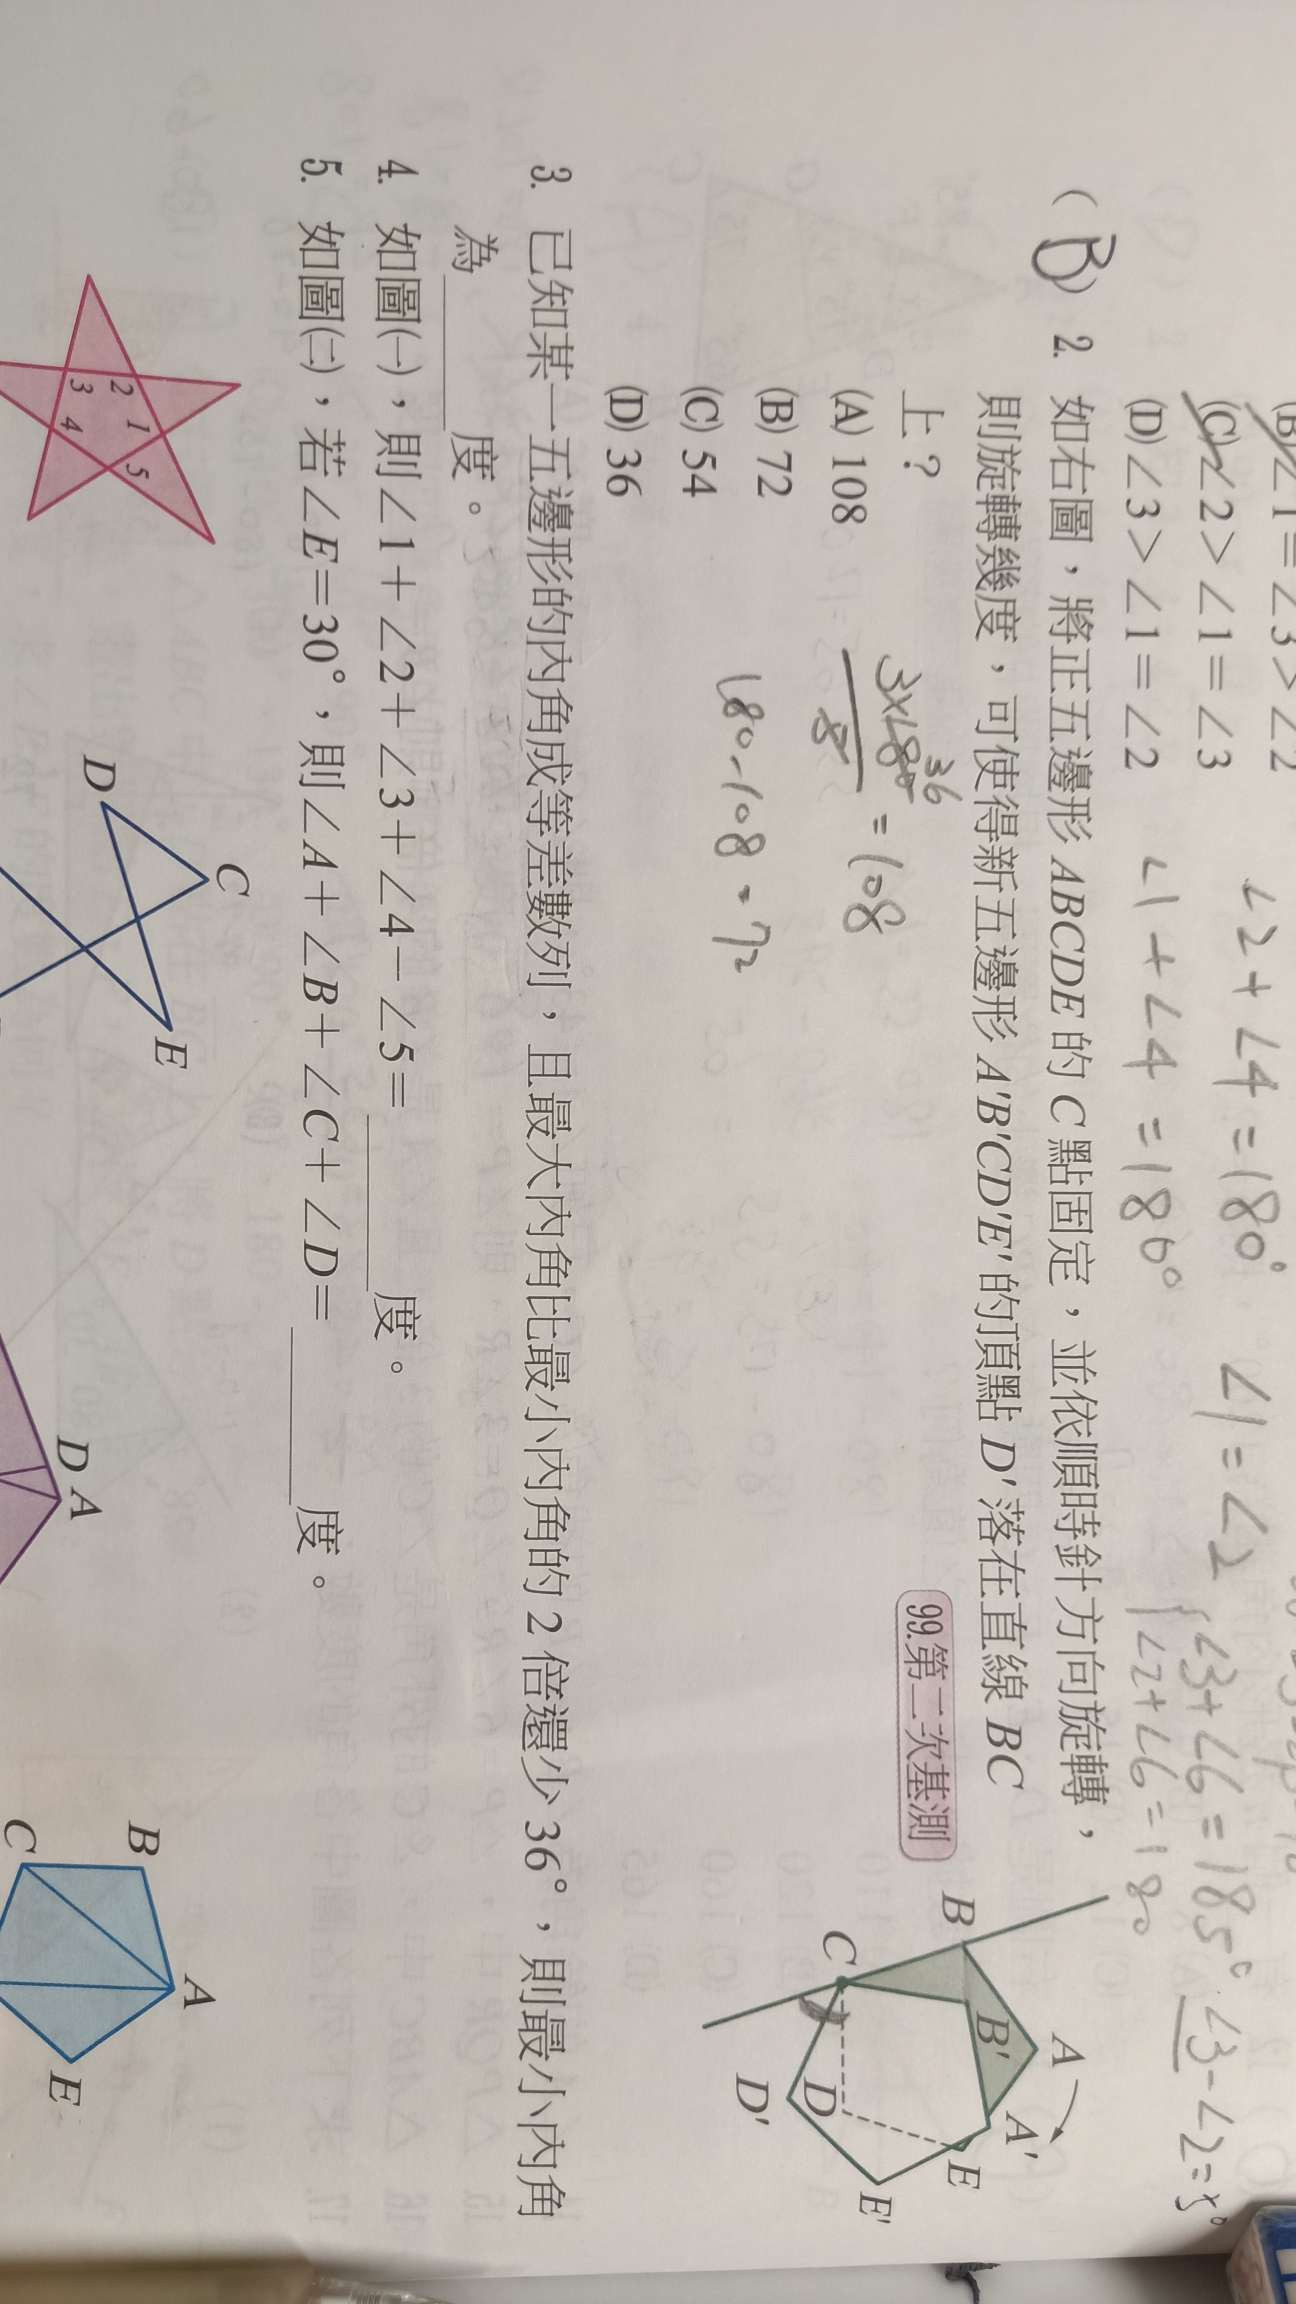 (B) ∠1=∠3>∠2
(C) ∠2>∠1=∠3
(D) ∠3>∠1=∠2
∠2+∠4=180°
∠1+∠4=180°
∠1=∠2
∠3+∠6=185°
∠2+∠6=180
∠3-∠2=5°
( B ) 2. 如右圖，將正五邊形 ABCDE 的 C 點固定，並依順時針方向旋轉，
則旋轉幾度，可使得新五邊形 A'B'CD'E' 的頂點 D' 落在直線 BC
上？
99.第二次基測
(A) 108
(B) 72
(C) 54
(D) 36
3×180
36
5
=108
180-108=72
B
A
B'
A'
C
D
E
D'
E'
3. 已知某一五邊形的內角成等差數列，且最大內角比最小內角的 2 倍還少 36°，則最小內角
為 度。
4. 如圖㈠，則∠1+∠2+∠3+∠4-∠5= 度。
5. 如圖㈡，若∠E=30°，則∠A+∠B+∠C+∠D= 度。
1
2
3
4
5
C
D
E
A
D
A
B
C
E